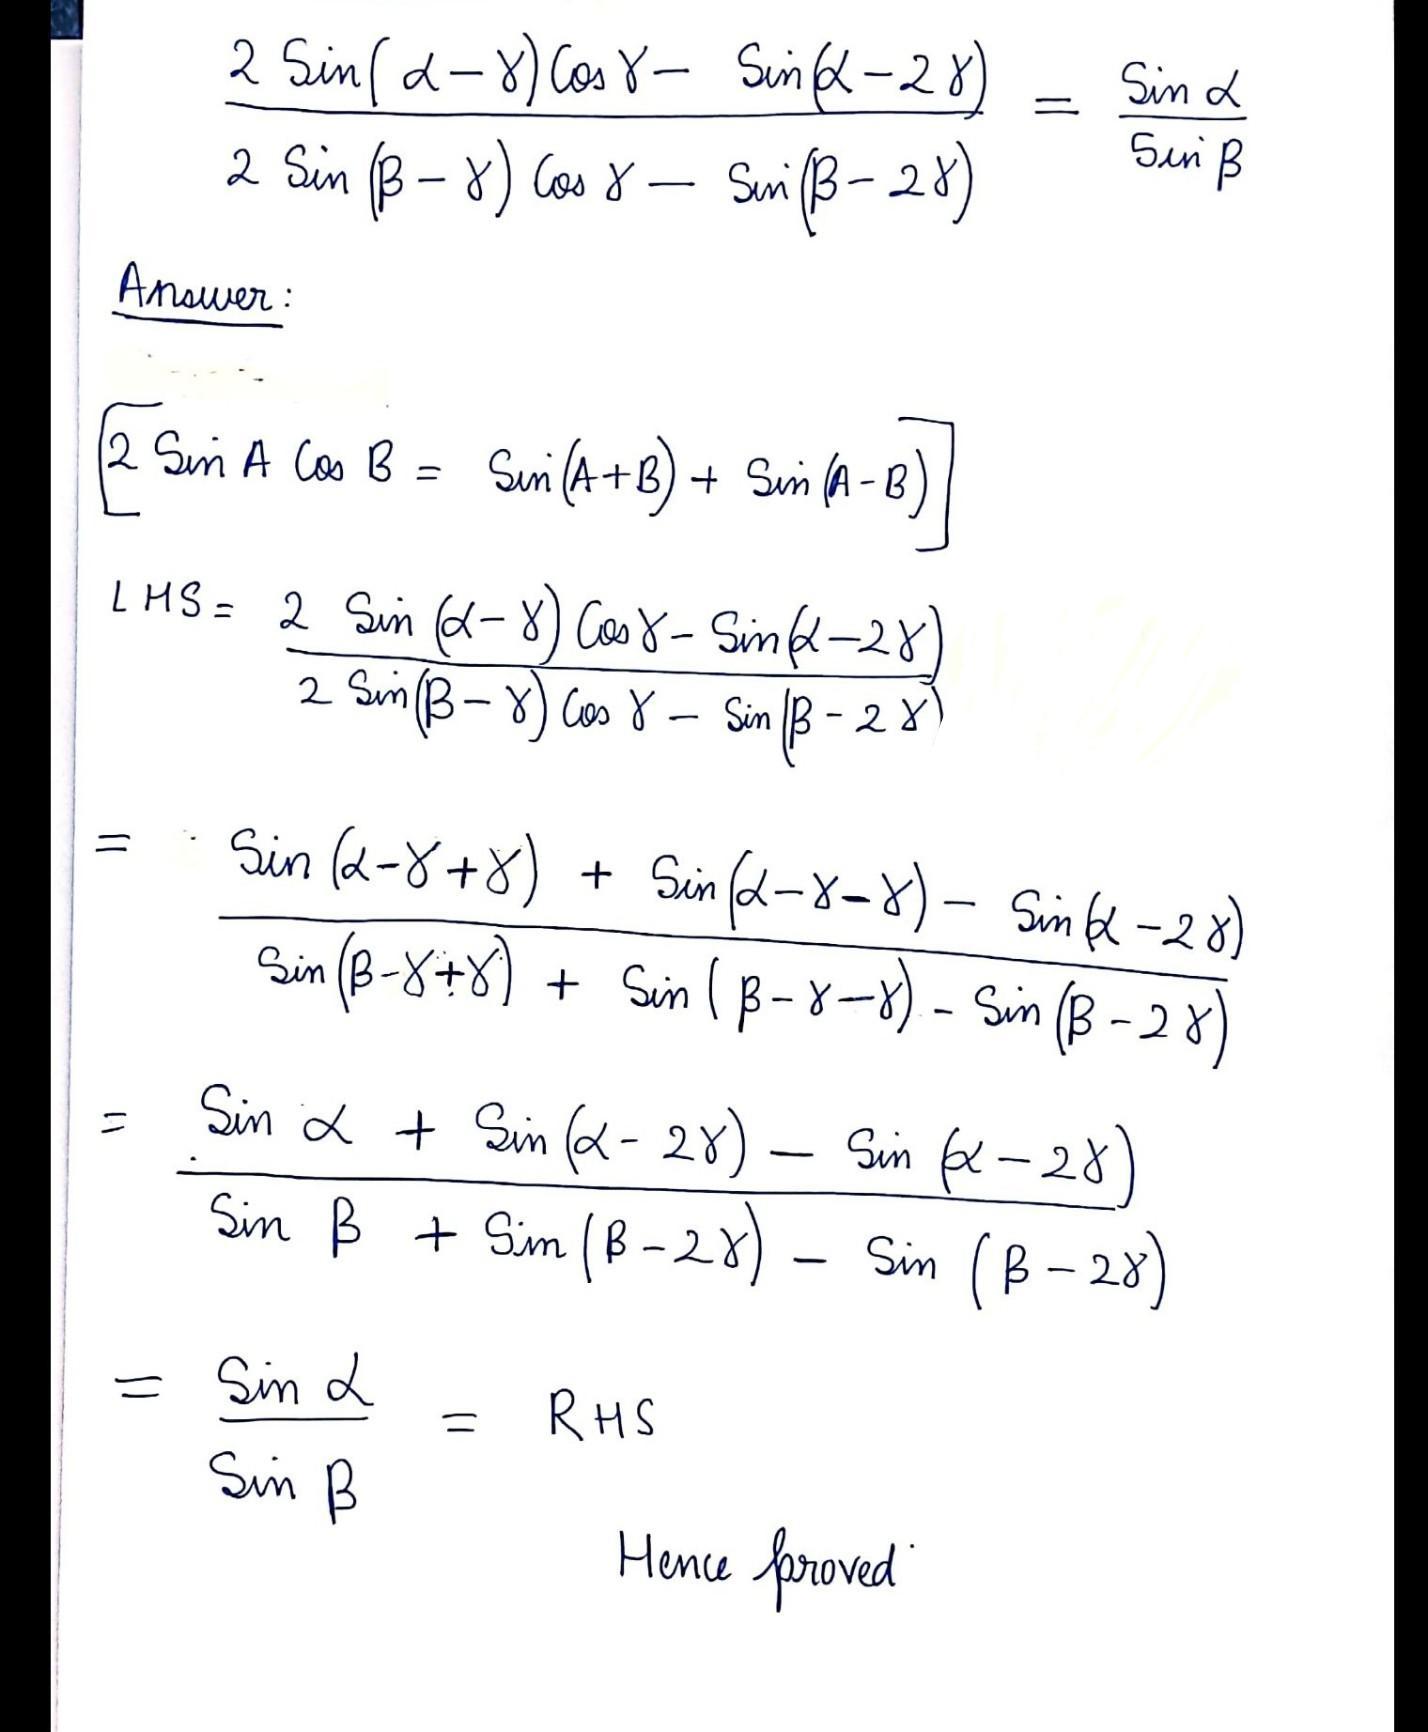 2 Sin(α-γ) Cos γ - Sin(α-2γ) = Sin α
2 Sin(β-γ) Cos γ - Sin(β-2γ) Sin β
Answer:
[2 Sin A Cos B = Sin(A+B) + Sin(A-B)]
LHS = 2 Sin(α-γ) Cos γ - Sin(α-2γ)
2 Sin(β-γ) Cos γ - Sin(β-2γ)
= Sin(α-γ+γ) + Sin(α-γ-γ) - Sin(α-2γ)
Sin(β-γ+γ) + Sin(β-γ-γ) - Sin(β-2γ)
= Sin α + Sin(α-2γ) - Sin(α-2γ)
Sin β + Sin(β-2γ) - Sin(β-2γ)
= Sin α = RHS
Sin β
Hence proved